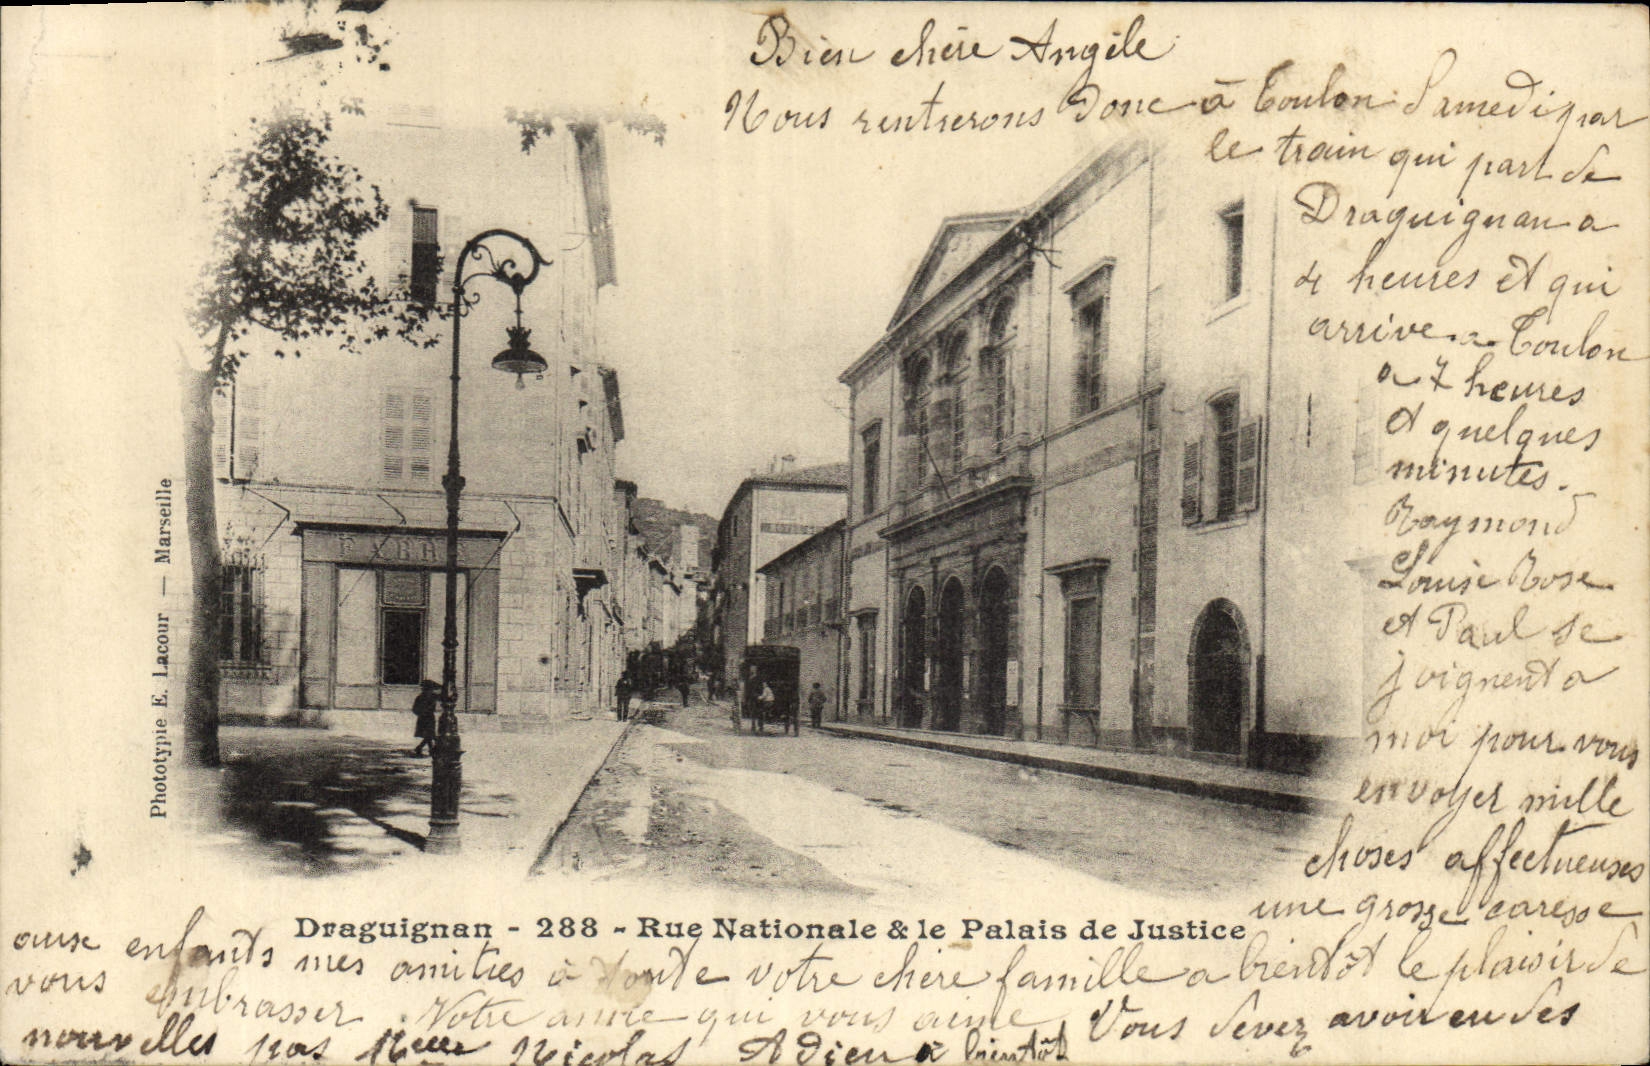 Bien chère Angèle
Nous rentrerons donc à Toulon Samedi par
le train qui part de
Draguignan a
4 heures et qui
arrive a Toulon
a 7 heures
et quelques
minutes.
Raymond
Louise Rose
et Paul se
joignent a
moi pour vous
envoyer mille
choses affectueuses
une grosse caresse
aux enfants mes amitiés à toute votre chère famille a bientôt le plaisir de
vous embrasser. Votre amie qui vous aime Vous devez avoir eu des
nouvelles par Nicolas Adieu à bientôt
FABRE
Phototypie E. Lacour — Marseille
Draguignan - 288 - Rue Nationale & le Palais de Justice